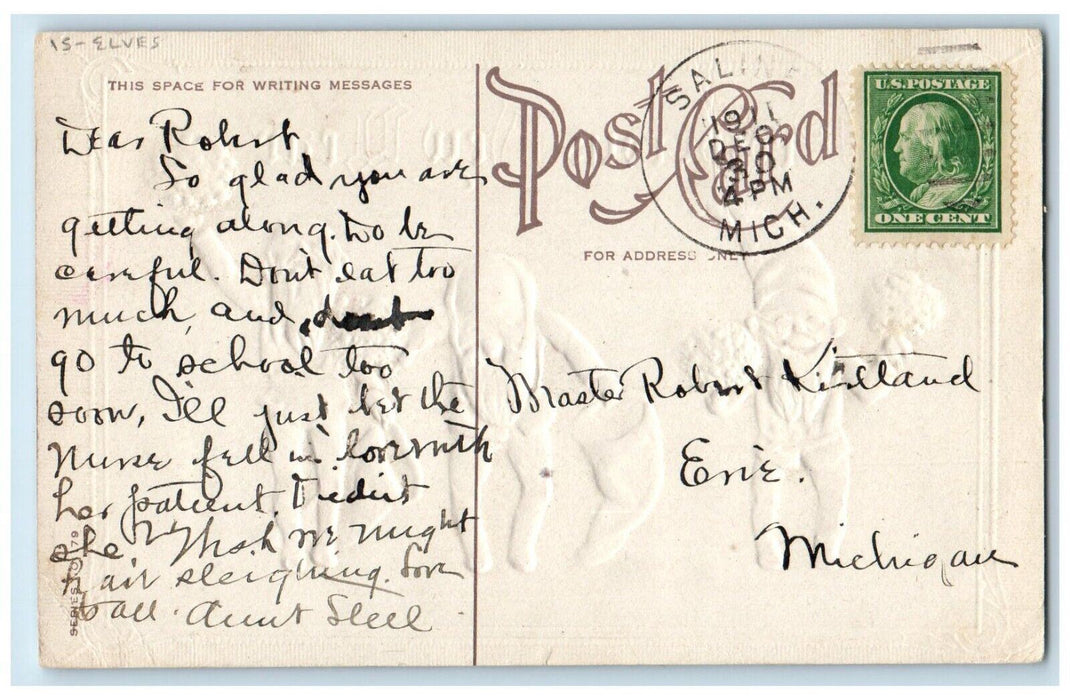 15- ELVES
THIS SPACE FOR WRITING MESSAGES
Post Card
FOR ADDRESS ONLY
SALINE
1911
DEC
30
4 PM
MICH.
U.S. POSTAGE
ONE CENT
Dear Robert
So glad you are
getting along. Do be
careful. Dont eat too
much, and
go to school too
soon, I'll just bet the
Nurse fell in love with
her patient. Didnt
she? Wish we might
sleighing. Love
to all. Aunt Stell
Master Robert Kirtland
Erie.
Michigan
SERIES NO 79